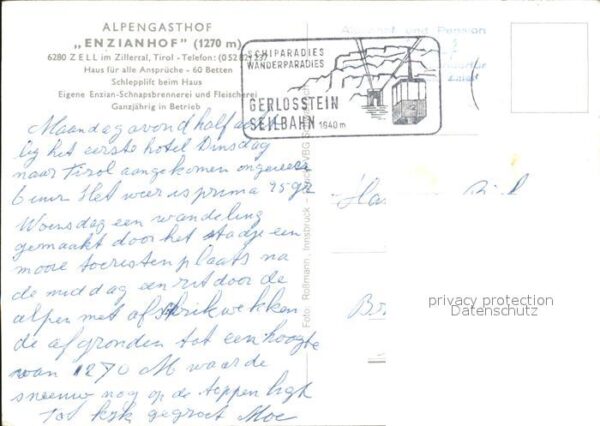 ALPENGASTHOF
„ENZIANHOF" (1270 m)
6280 ZELL im Zillertal, Tirol - Telefon: (0 52 82) 237
Haus für alle Ansprüche - 60 Betten
Schlepplift beim Haus
Eigene Enzian-Schnapsbrennerei und Fleischerei
Ganzjährig in Betrieb
SCHIPARADIES
WANDERPARADIES
GERLOSSTEIN
SEILBAHN 1640 m
Pension
Maandag avond half
bij het eerste hotel Dinsdag
naar Tirol aangekomen ongeveer
6 uur Het weer is prima 25 gr
Woensdag een wandeling
gemaakt door het stadje een
mooie toeristen plaats na
de middag een rit door de
alpen met afschrikwekken
de afgronden tot een hoogte
van 1270 M waar de
sneeuw nog op de toppen ligt
Tot kijk gegroet
Foto: Roßmann, Innsbruck -
VBG
privacy protection
Datenschutz